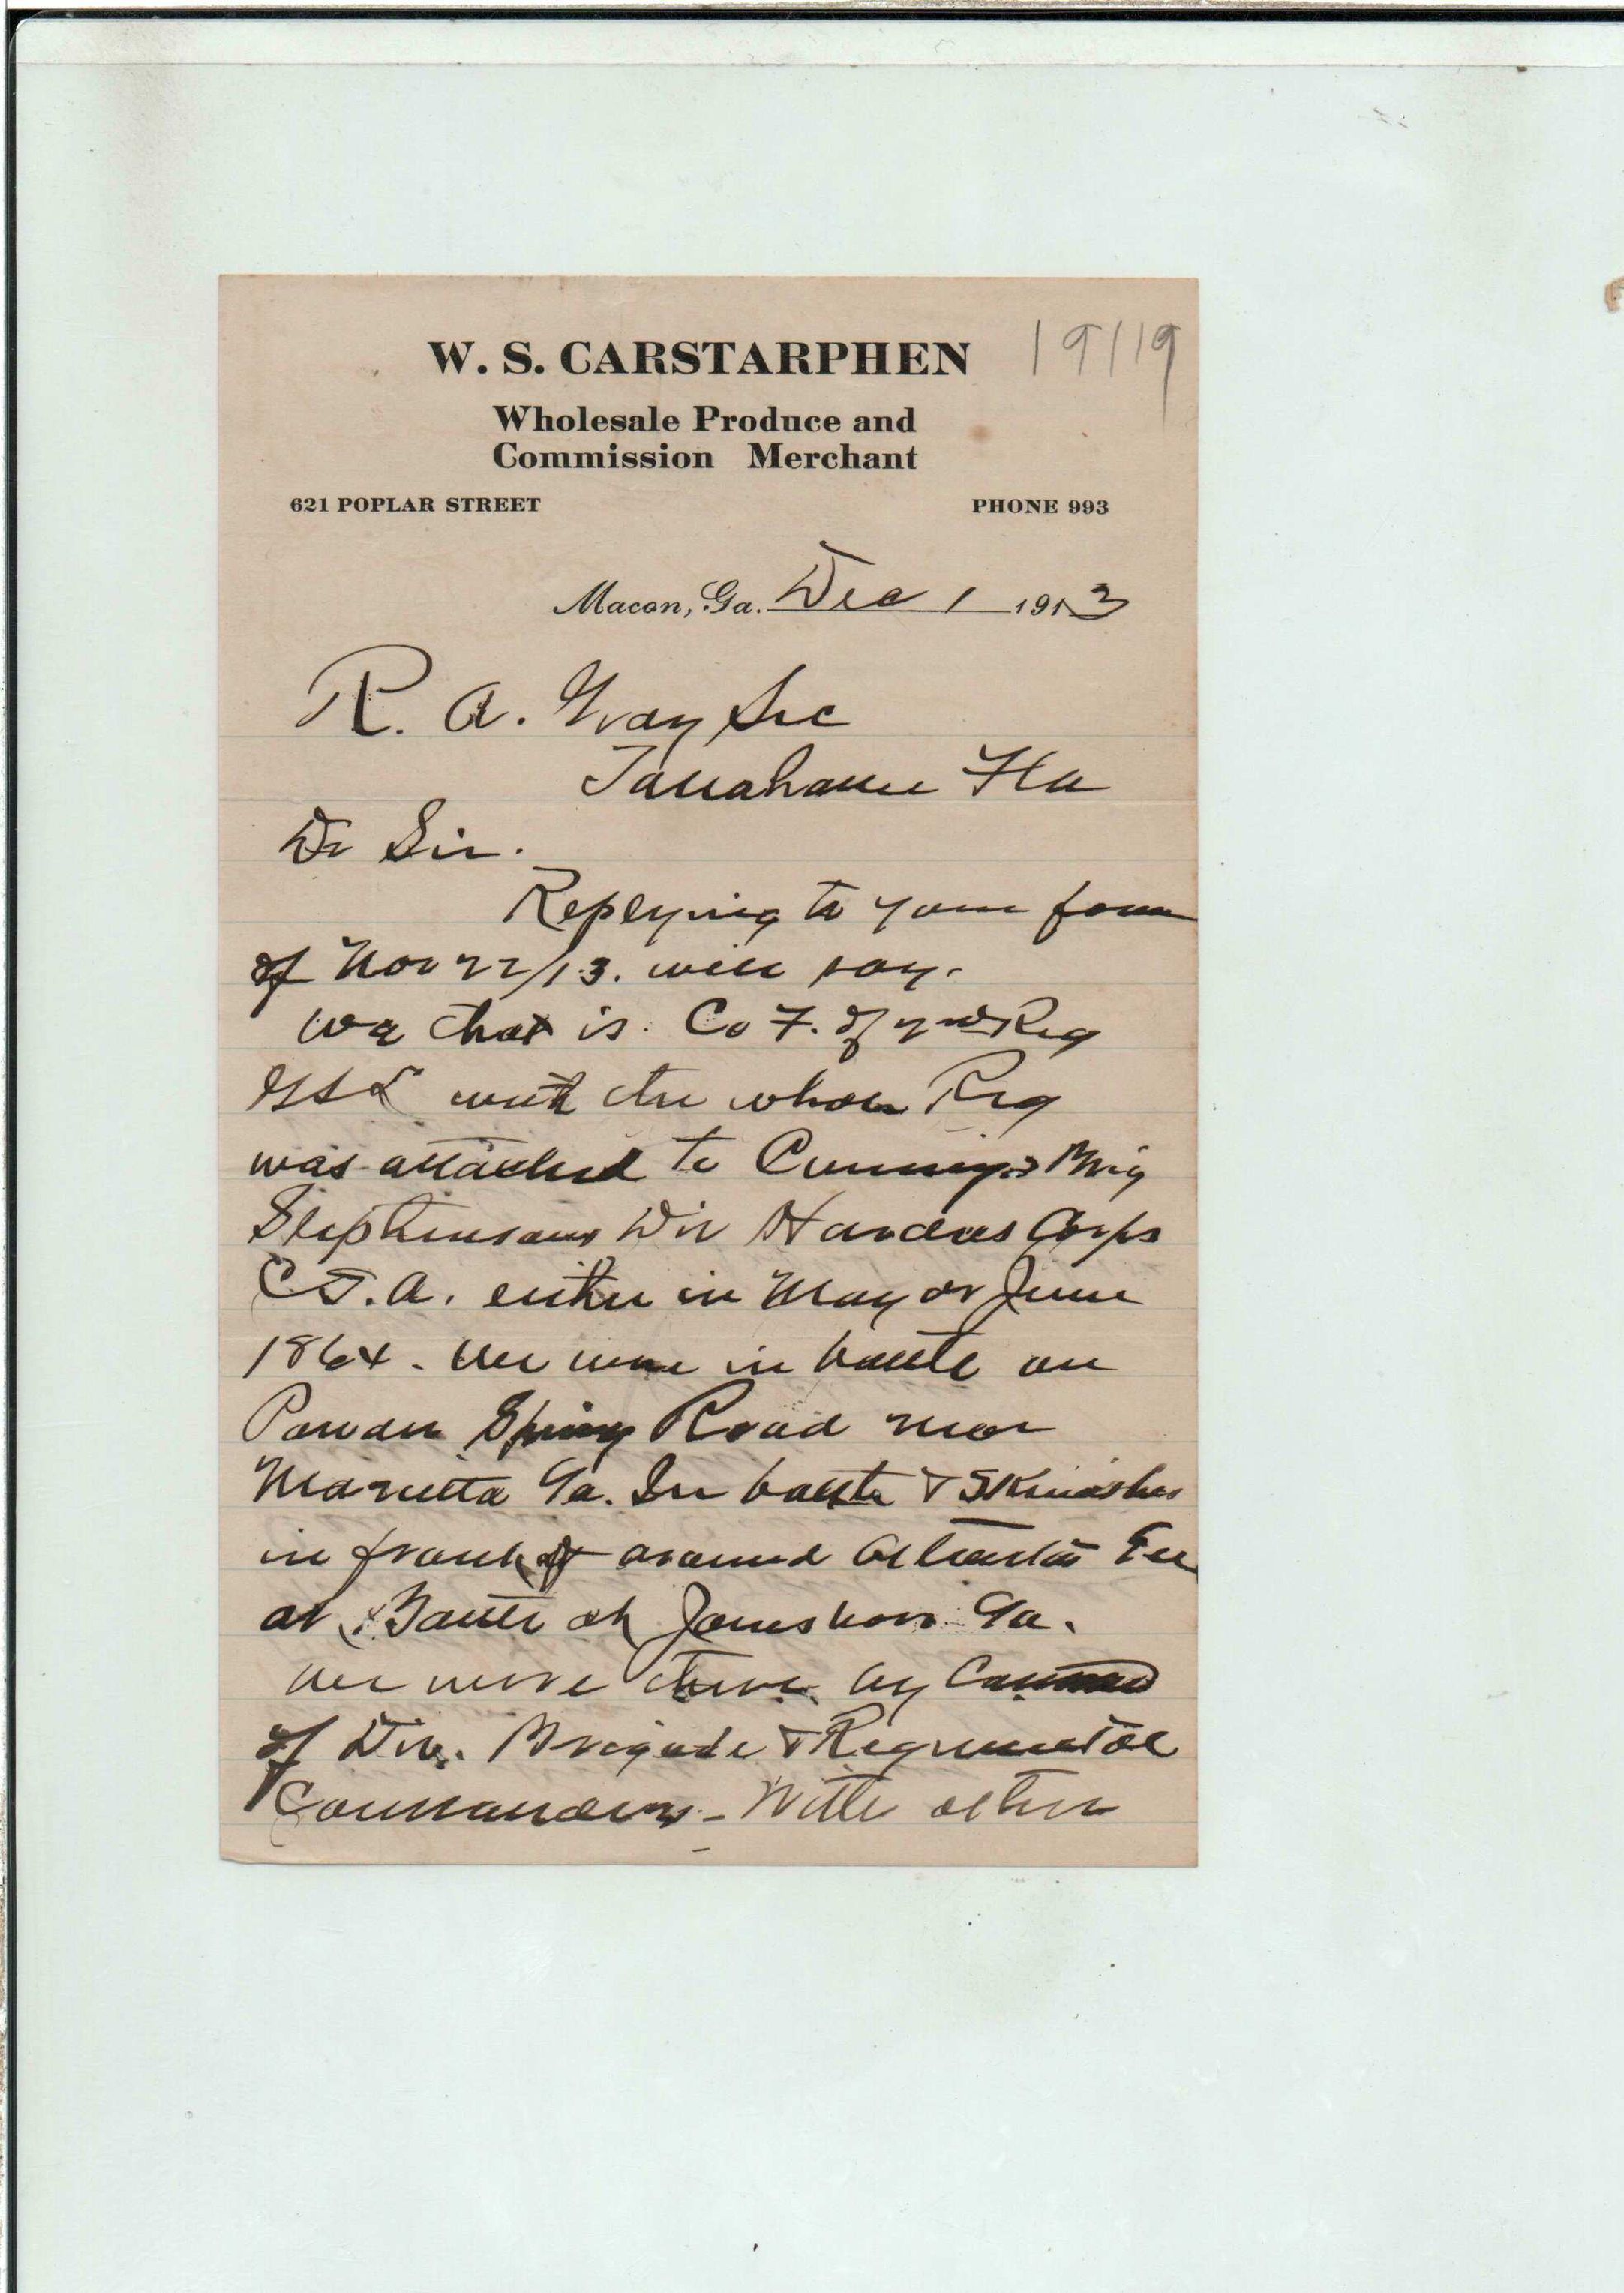 19119
W. S. CARSTARPHEN
Wholesale Produce and
Commission Merchant
621 POPLAR STREET PHONE 993
Macon, Ga. Dec 1 1913
R. A. Gray Sec
Tallahassee Fla
Dr Sir.
Replying to your favor
of Nov 22/13. will say.
We that is. Co F. of 2nd Reg
GSL with the whole Reg
was attached to Brig
Stephensons Div Hardees Corps
C.S.A. either in May or June
1864. We were in battle on
Powder Spring Road near
Marietta Ga. In battle & Skirmishes
in front of around Atlanta
at Battle of Jonesboro Ga.
We were there by Command
of Div. Brigade & Regimental
Commanders - With other